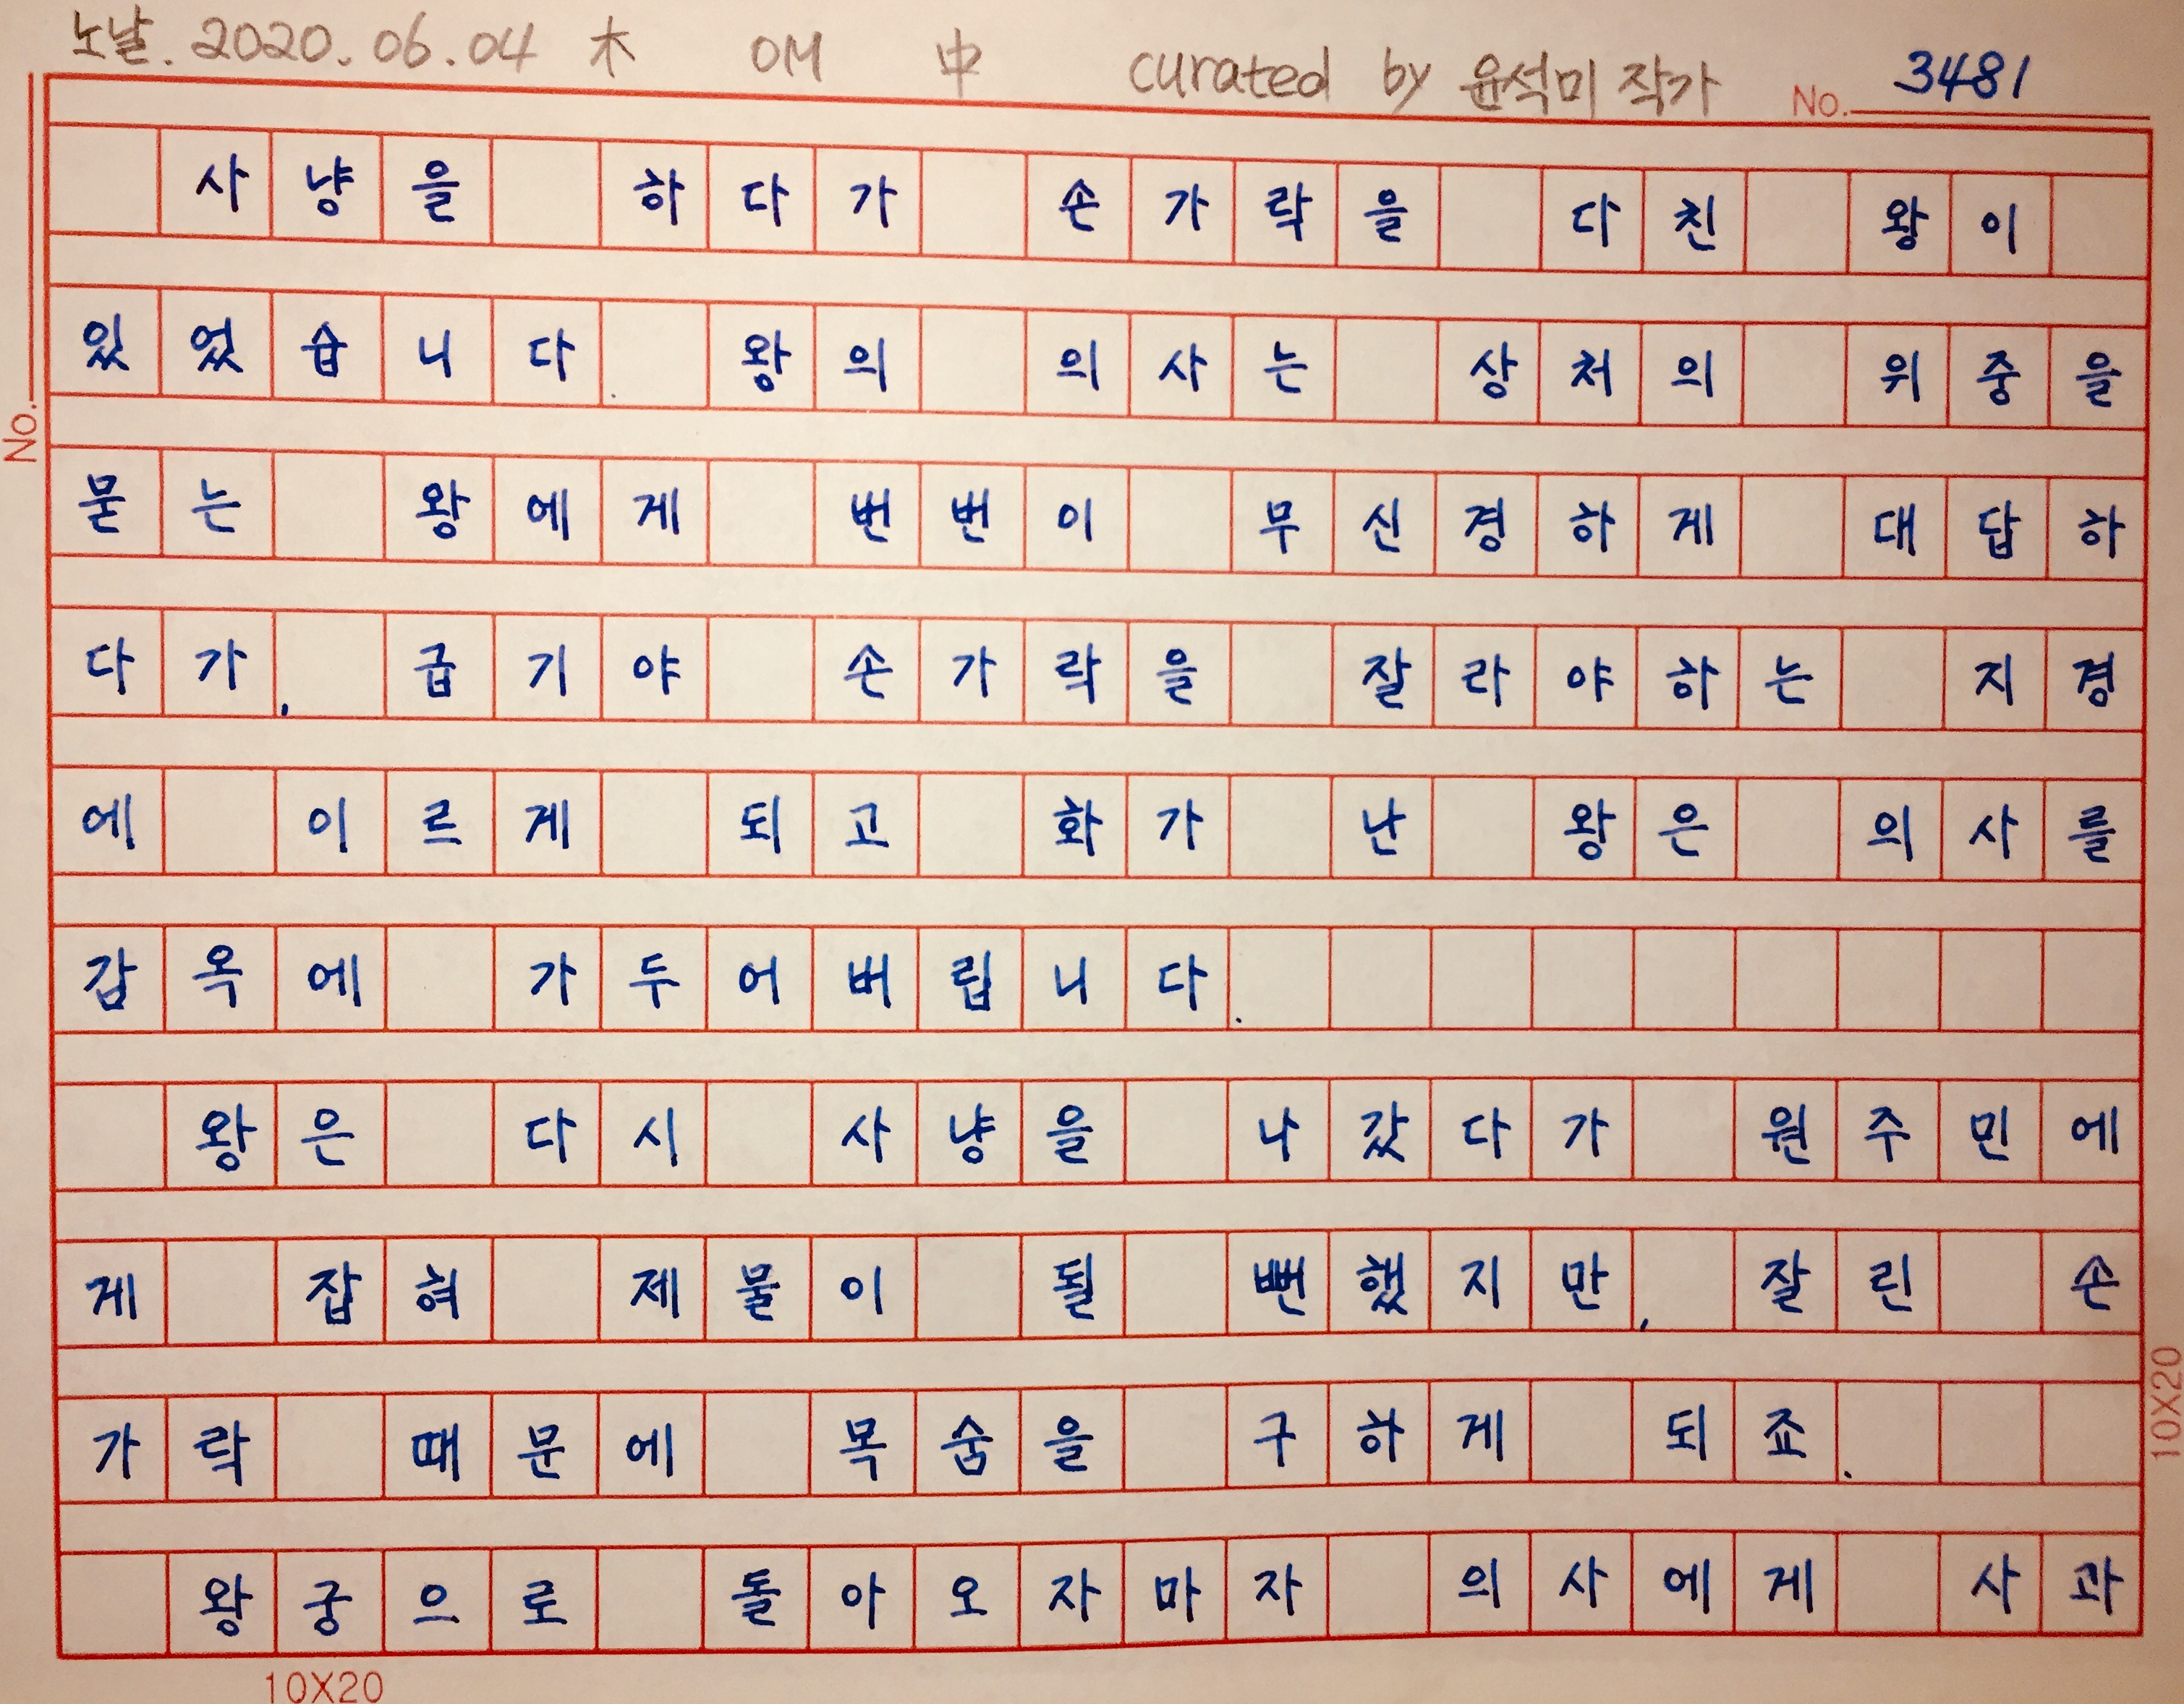 노날. 2020. 06. 04 木 OM 中 curated by 윤석미 작가 No. 3481
사냥을 하다가 손가락을 다친 왕이
있었습니다. 왕의 의사는 상처의 위중을
묻는 왕에게 번번이 무신경하게 대답하
다가, 급기야 손가락을 잘라야하는 지경
에 이르게 되고 화가 난 왕은 의사를
감옥에 가두어버립니다.
왕은 다시 사냥을 나갔다가 원주민에
게 잡혀 제물이 될 뻔했지만, 잘린 손
가락 때문에 목숨을 구하게 되죠.
왕궁으로 돌아오자마자 의사에게 사과
No.
10X20
10X20